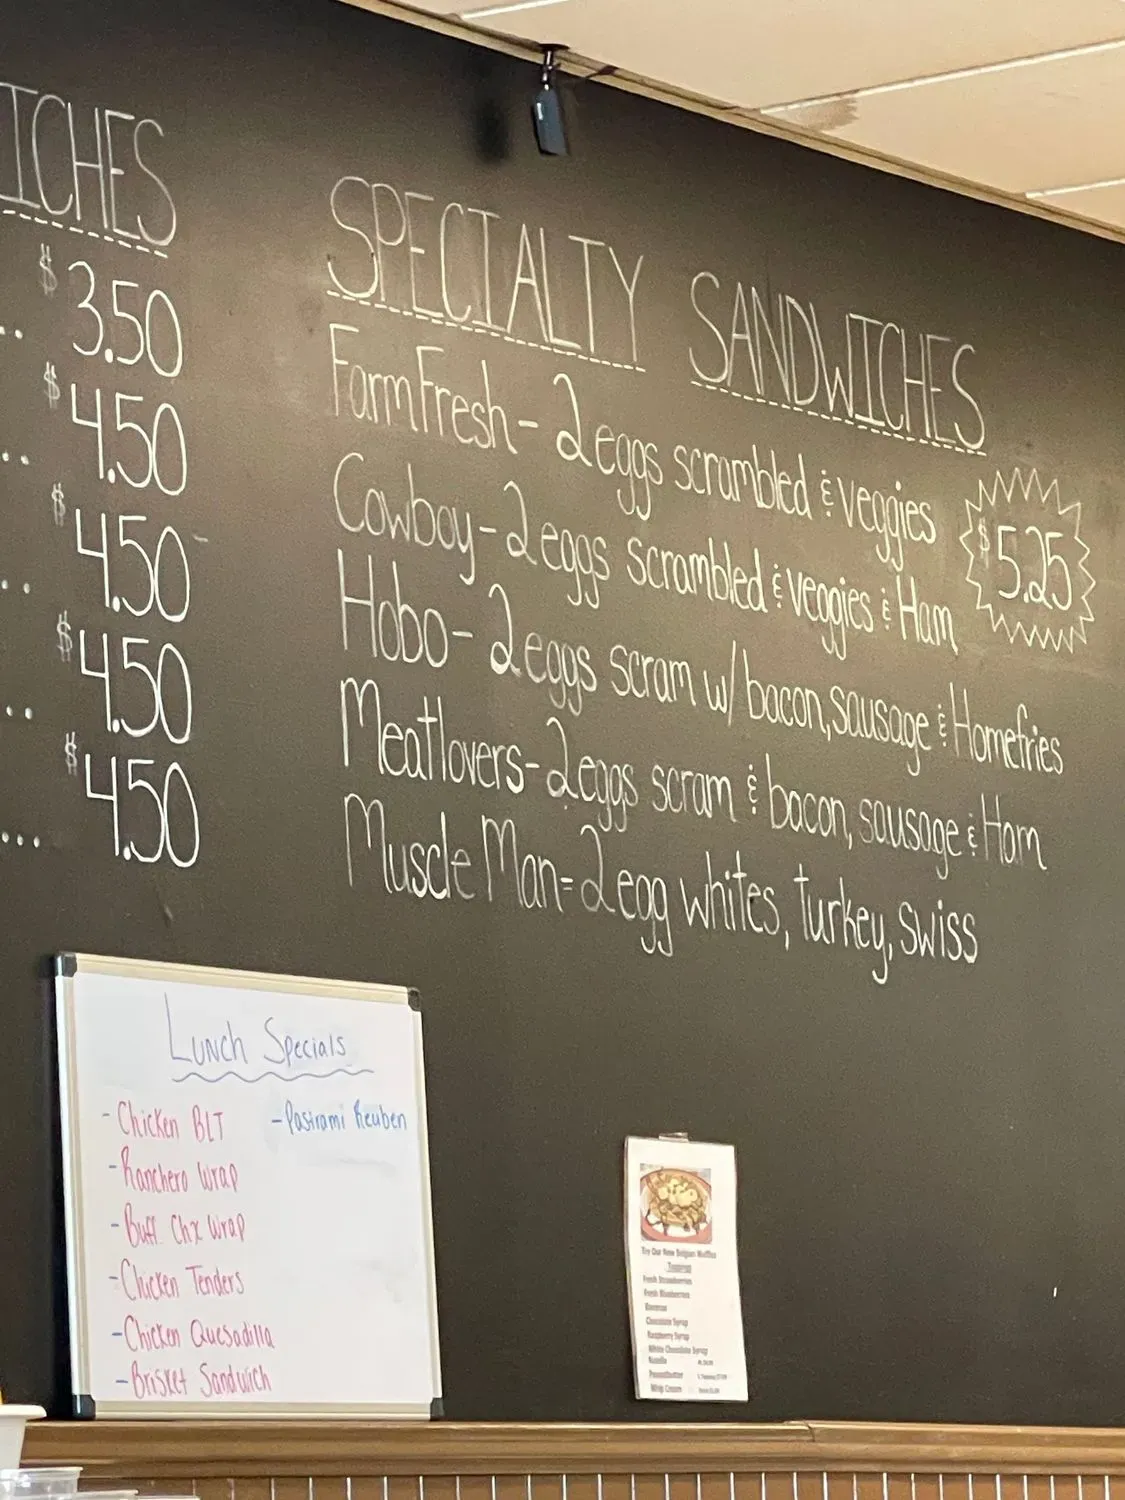 ICHES
$3.50
.. $4.50
.. $4.50
.. $4.50
... $4.50
SPECIALTY SANDWICHES
Farm Fresh - 2 eggs scrambled & veggies
$5.25
Cowboy - 2 eggs scrambled & veggies & Ham
Hobo - 2 eggs scram w/ bacon, sausage & Homefries
Meatlovers - 2 eggs scram & bacon, sausage & Ham
Muscle Man = 2 egg whites, turkey, swiss
Lunch Specials
- Chicken BLT
- Ranchero Wrap
- Buff. Chx Wrap
- Chicken Tenders
- Chicken Quesadilla
- Brisket Sandwich
- Pastrami Reuben
Try Our New Belgian Waffles
Toppings
Fresh Strawberries
Fresh Blueberries
Bananas
Chocolate Syrup
Raspberry Syrup
White Chocolate Syrup
Nutella
Peanutbutter
Whip Cream